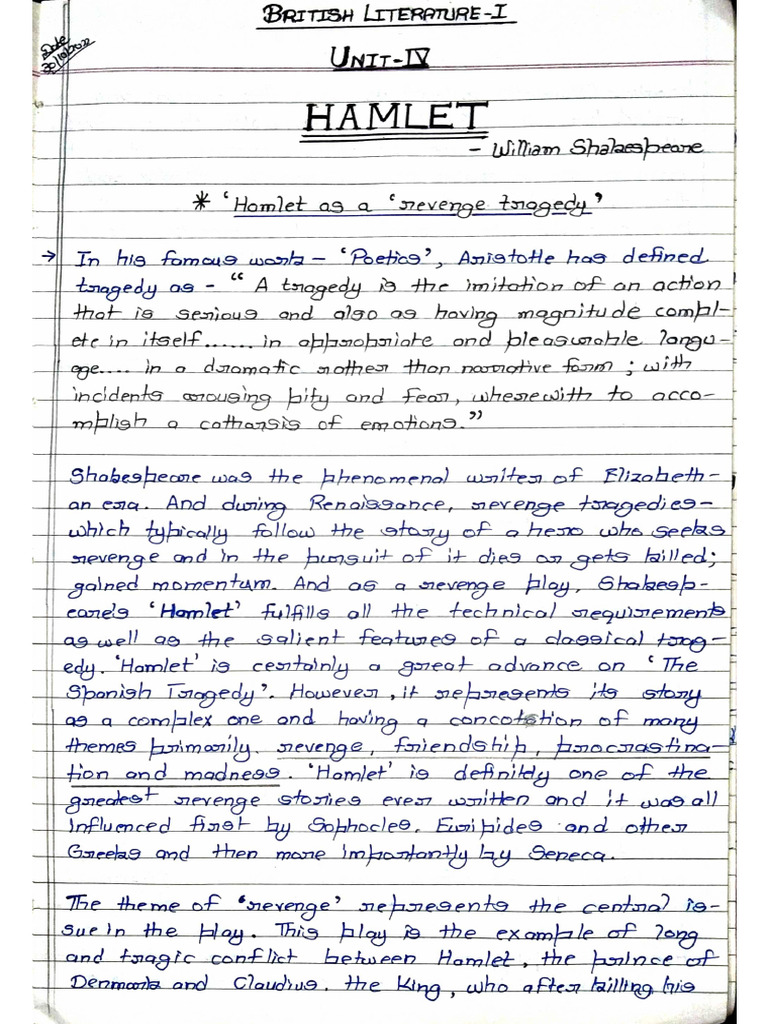 BRITISH LITERATURE-I
Date
20/10/2022
UNIT-IV
HAMLET
- William Shakespeare
* 'Hamlet as a 'revenge tragedy'
→ In his famous work - 'Poetics', Aristotle has defined
tragedy as - " A tragedy is the imitation of an action
that is serious and also as having magnitude compl-
ete in itself...... in appropriate and pleasurable langu-
age.... in a dramatic rather than narrative form ; with
incidents arousing pity and fear, wherewith to acco-
mplish a catharsis of emotions."
Shakespeare was the phenomenal writer of Elizabeth-
an era. And during Renaissance, revenge tragedies-
which typically follow the story of a hero who seeks
revenge and in the pursuit of it dies or gets killed;
gained momentum. And as a revenge play, Shakesp-
eare's 'Hamlet' fulfills all the technical requirements
as well as the salient features of a classical trag-
edy. 'Hamlet' is certainly a great advance on 'The
Spanish Tragedy'. However, it represents its story
as a complex one and having a of many
themes primarily revenge, friendship, procrastina-
tion and madness. 'Hamlet' is definitely one of the
greatest revenge stories ever written and it was all
influenced first by Sophocles, Euripides and other
Greeks and then more importantly by Seneca.
The theme of 'revenge' represents the central is-
sue in the play. This play is the example of long
and tragic conflict between Hamlet, the prince of
Denmark and Claudius, the King, who after killing his